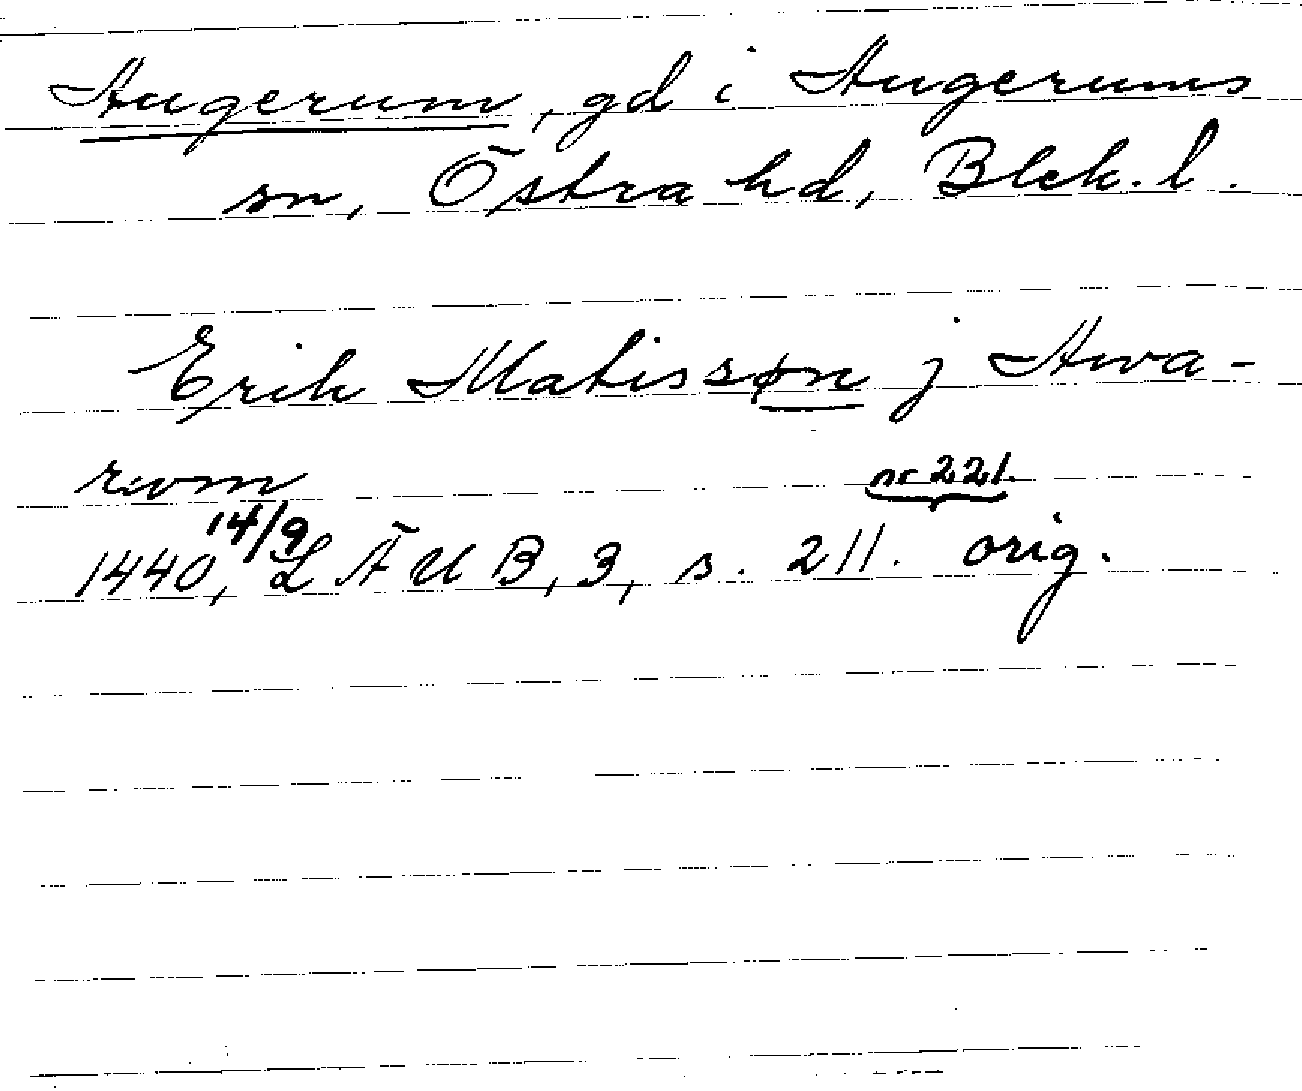 Augerum, gd i Augerums
sn, Östra hd, Blek. l.
Erik Matissøn j Awa-
rwm
nr 221.
1440, 14/9 LÄUB, 3, s. 211. orig.